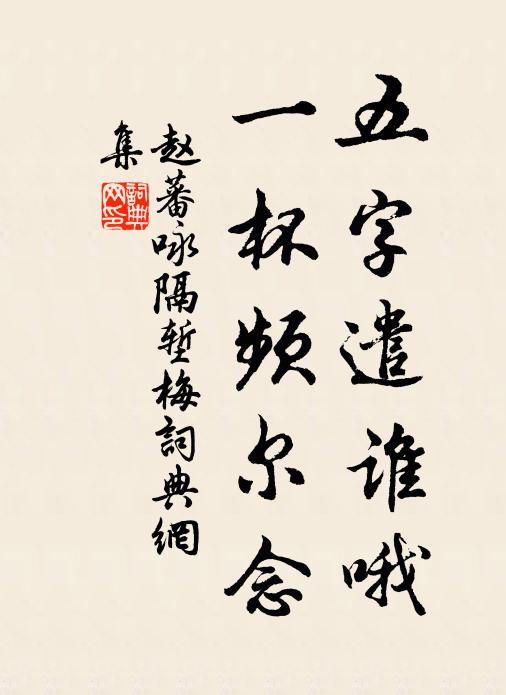 五字遣谁哦
一杯频尔念
赵蕃咏隔堑梅詞典網
集
詞典网印